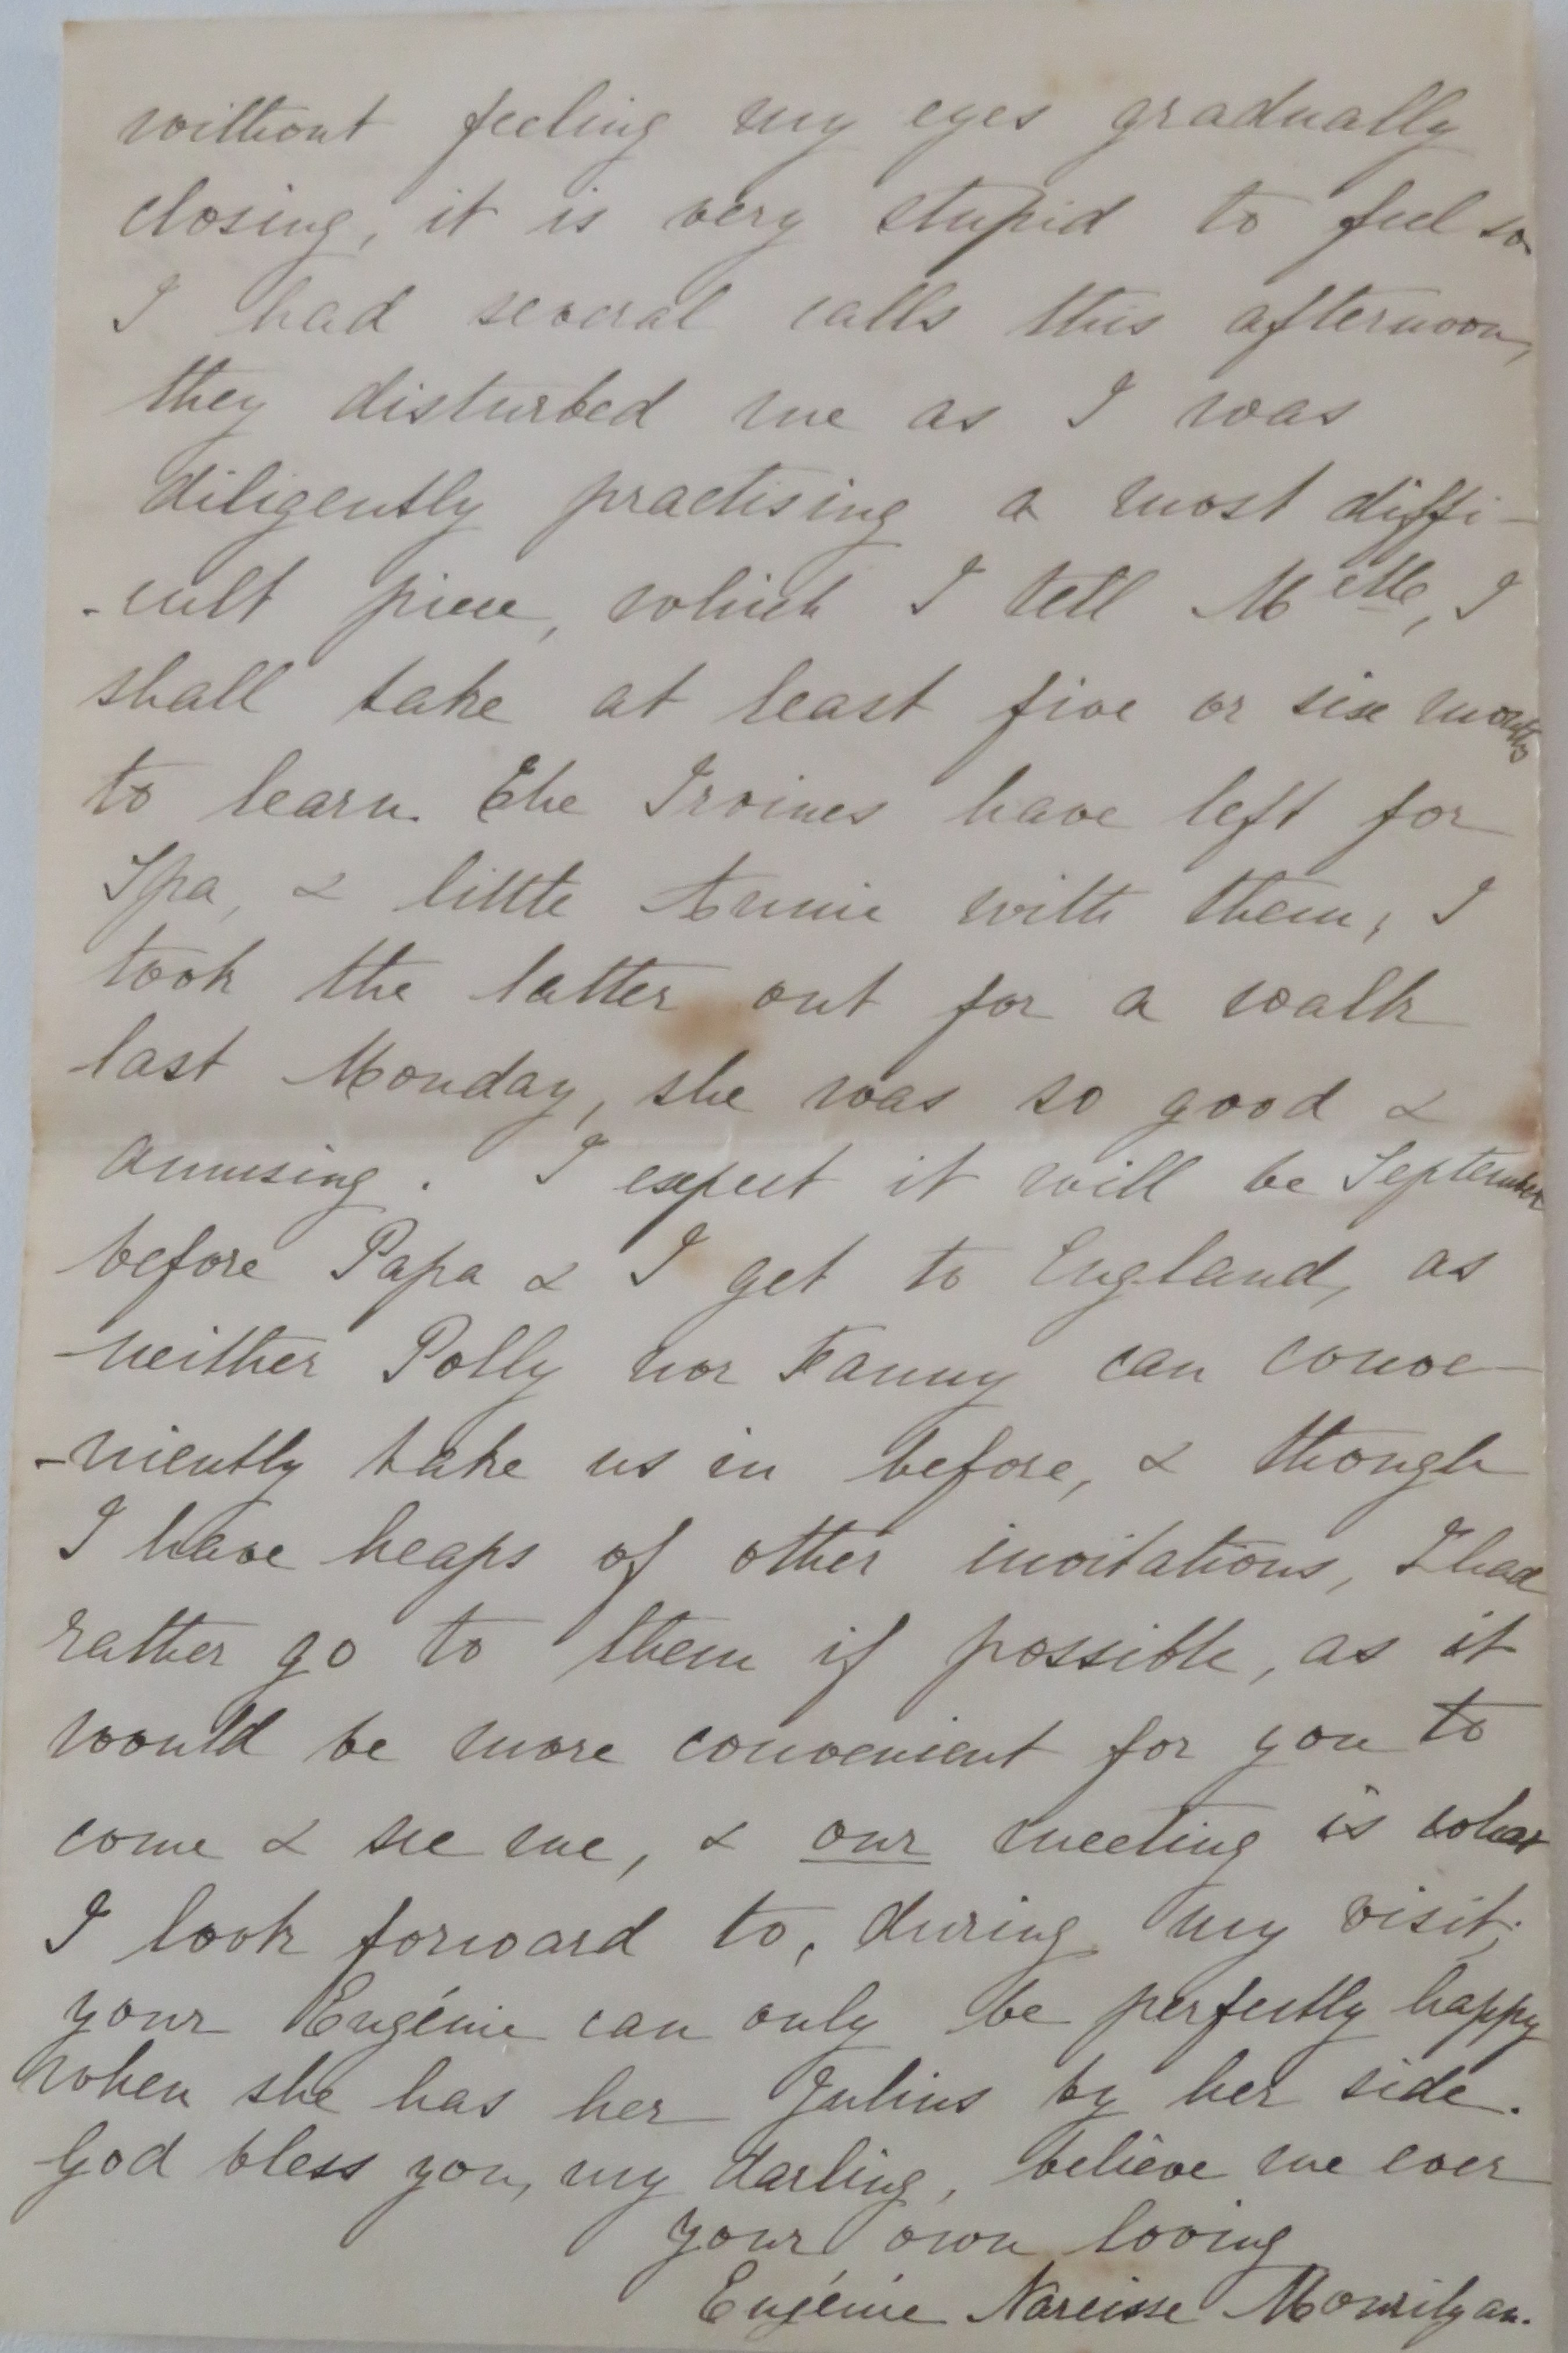 without feeling my eyes gradually
closing, it is very stupid to feel so
I had several calls this afternoon,
they disturbed me as I was
diligently practising a most diffi-
-cult piece, which I tell Melle, I
shall take at least five or six months
to learn. The Irvines have left for
Spa, & little Annie with them, I
took the latter out for a walk
last Monday, she was so good &
amusing. I expect it will be September
before Papa & I get to England, as
neither Polly nor Fanny can conve-
-niently take us in before, & though
I have heaps of other invitations, I had
rather go to them if possible, as it
would be more convenient for you to
come & see me, & our meeting is what
I look forward to, during my visit;
your Eugénie can only be perfectly happy
when she has her Julius by her side.
God bless you, my darling, believe me ever
your own loving
Eugénie Narcisse Mourilyan.